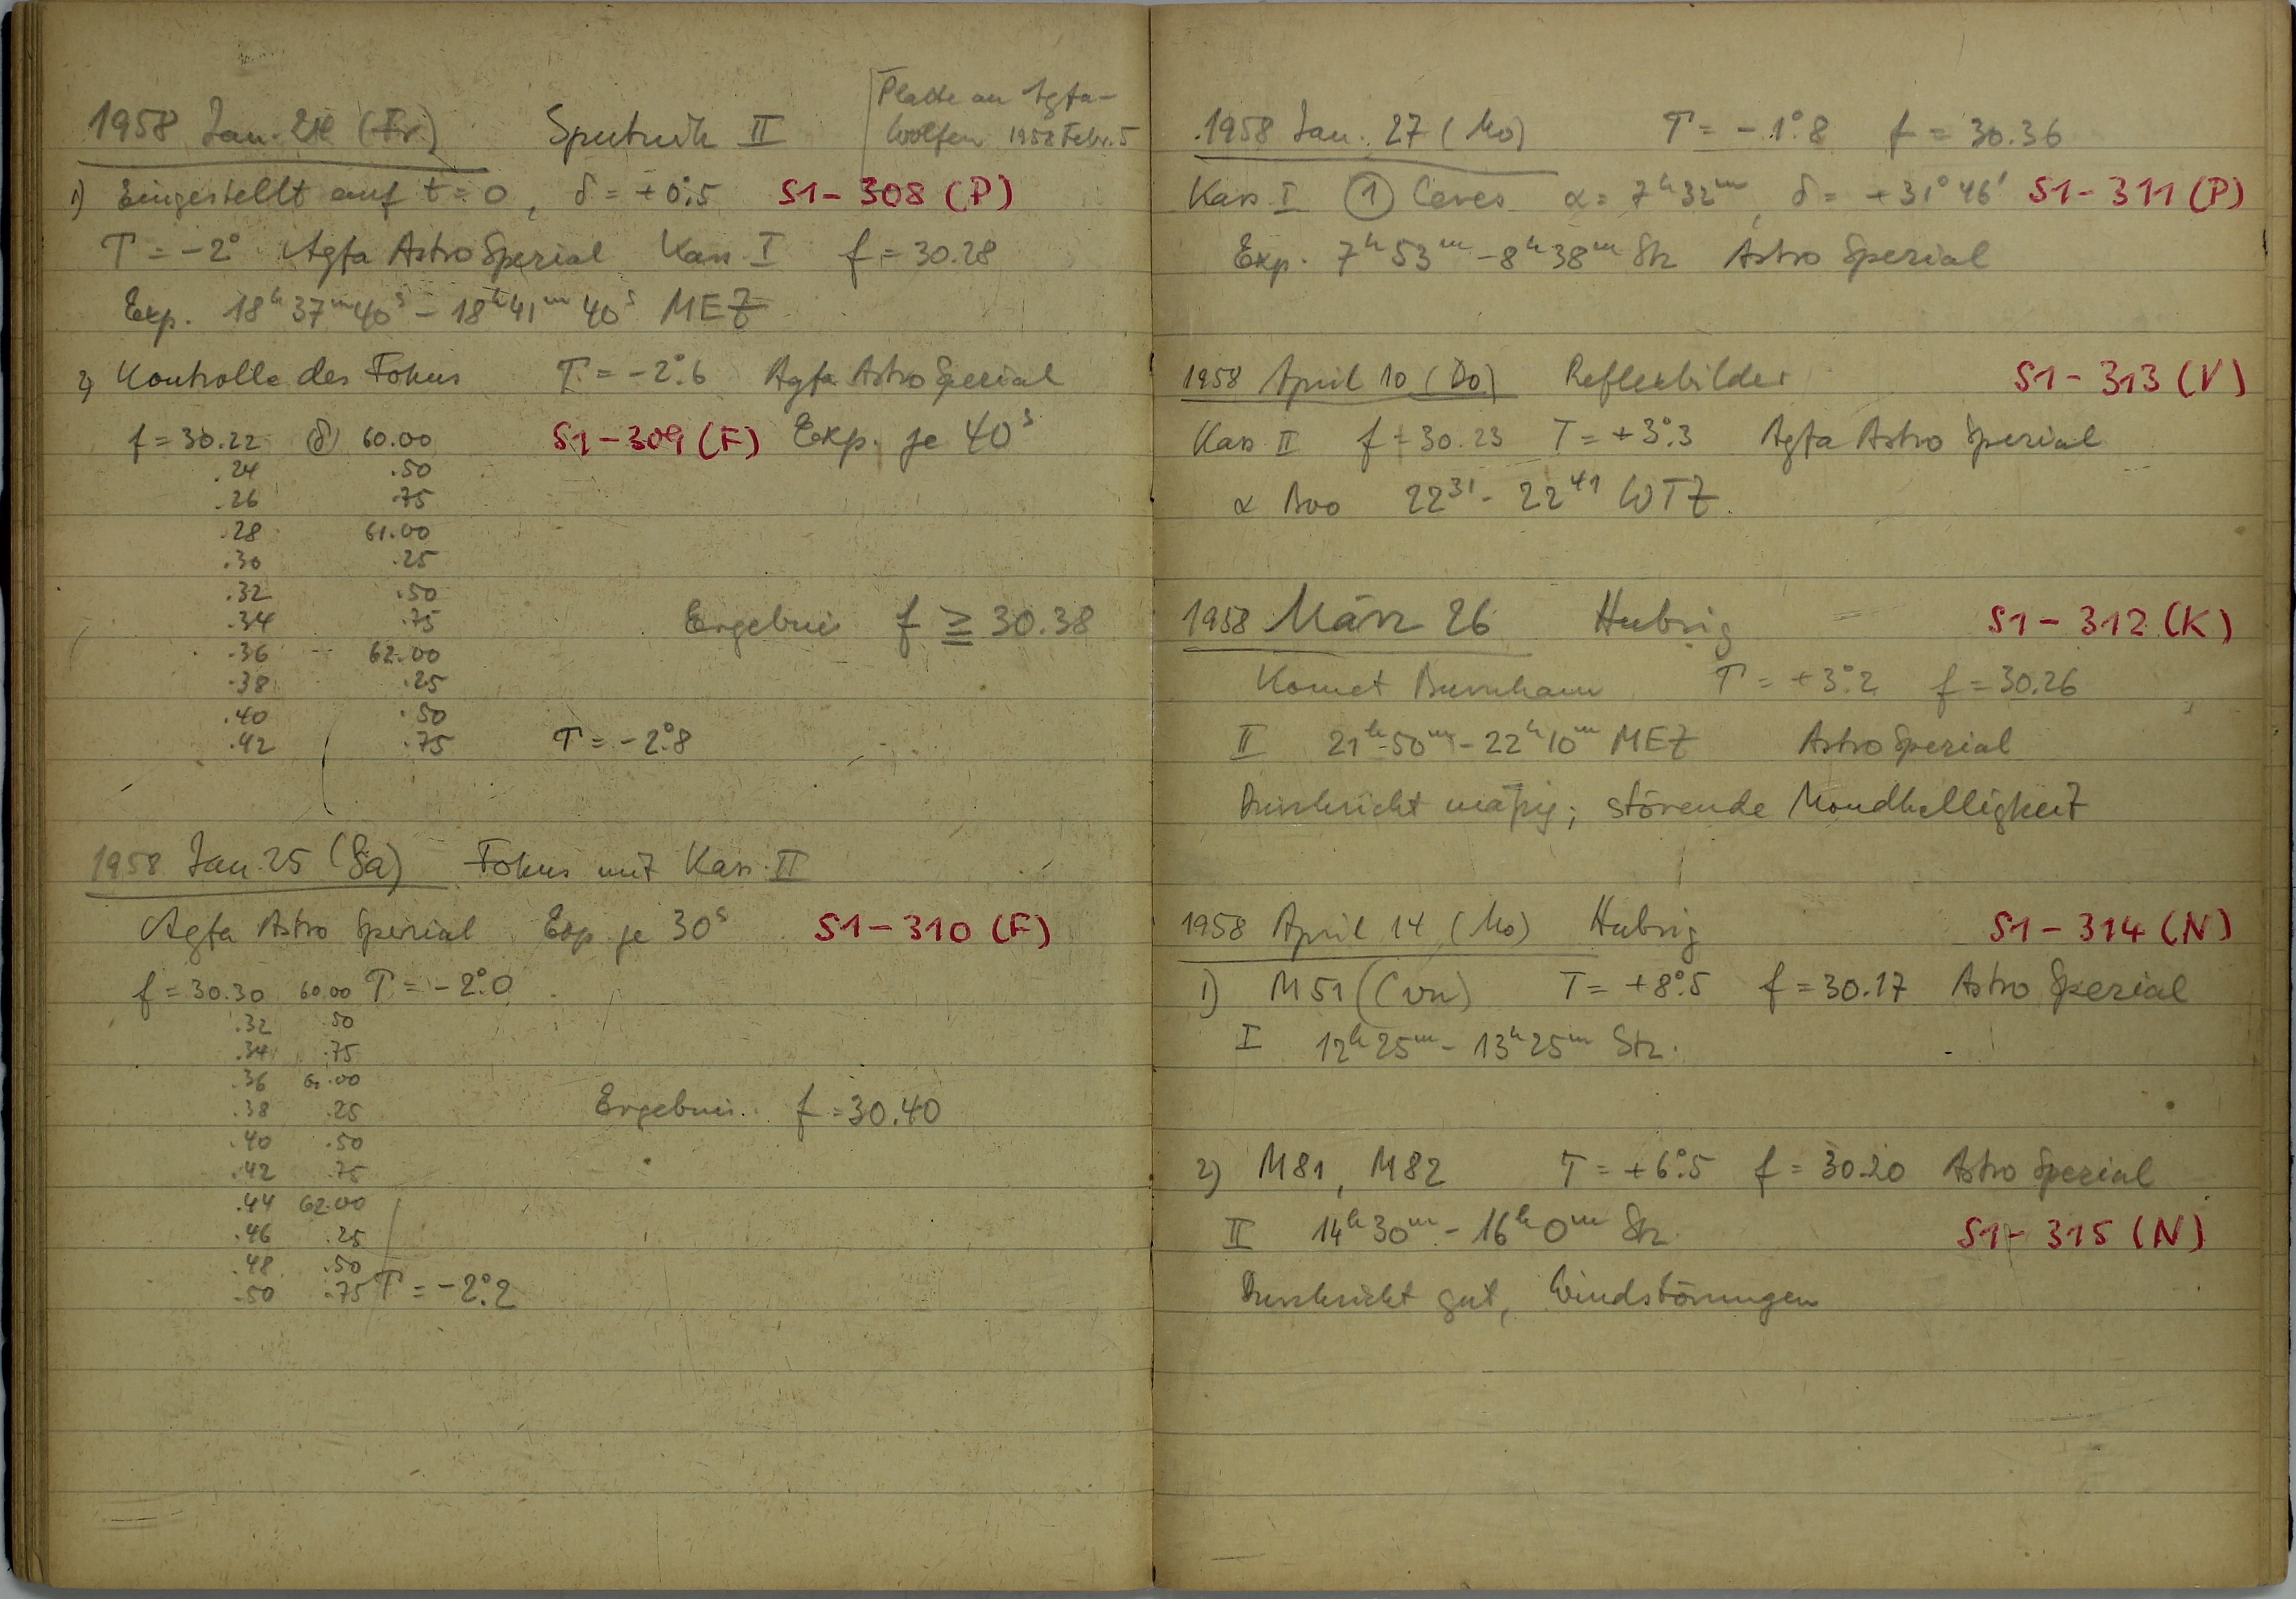 1958 Jan. 24 (Fr.) Sputnik II
Platte an Agfa-
Wolfen 1958 Febr. 5
1) Eingestellt auf t = 0, δ = +0°.5 S1-308 (P)
T = -2° Agfa Astro Spezial Kass. I f = 30.28
Exp. 18h 37m 40s - 18h 41m 40s MEZ
2) Kontrolle des Fokus T = -2°.6 Agfa Astro Spezial
f = 30.22 (δ) 60.00 S1-309 (F) Exp. je 40s
.24 .50
.26 .75
.28 61.00
.30 .25
.32 .50
.34 .75 Ergebnis f ≧ 30.38
.36 62.00
.38 .25
.40 .50
.42 .75 T = -2°.8
1958 Jan. 25 (Sa) Fokus mit Kass. II
Agfa Astro Spezial Exp je 30s S1-310 (F)
f = 30.30 60.00 T = -2°.0
.32 .50
.34 .75
.36 61.00
.38 .25 Ergebnis. f = 30.40
.40 .50
.42 .75
.44 62.00
.46 .25
.48 .50
.50 .75 T = -2°.2
1958 Jan. 27 (Mo) T = -1°.8 f = 30.36
Kass. I ① Ceres α = 7h 32m, δ = +31° 46' S1-311 (P)
Exp. 7h 53m - 8h 38m Stz Astro Spezial
1958 April 10 (Do) Reflexbilder S1-313 (V)
Kass. II f = 30.23 T = +3°.3 Agfa Astro Spezial
α Boo 22³¹ - 22⁴¹ WTZ.
1958 März 26 Hubrig S1-312 (K)
Komet Burnham T = +3°.2 f = 30.26
II 21h 50m - 22h 10m MEZ Astro Spezial
Durchsicht mäßig; störende Mondhelligkeit
1958 April 14 (Mo) Hubrig S1-314 (N)
1) M51 (CVn) T = +8°.5 f = 30.17 Astro Spezial
I 12h 25m - 13h 25m Stz.
2) M81, M82 T = +6°.5 f = 30.20 Astro Spezial
II 14h 30m - 16h 0m Stz. S1-315 (N)
Durchsicht gut, Windstörungen